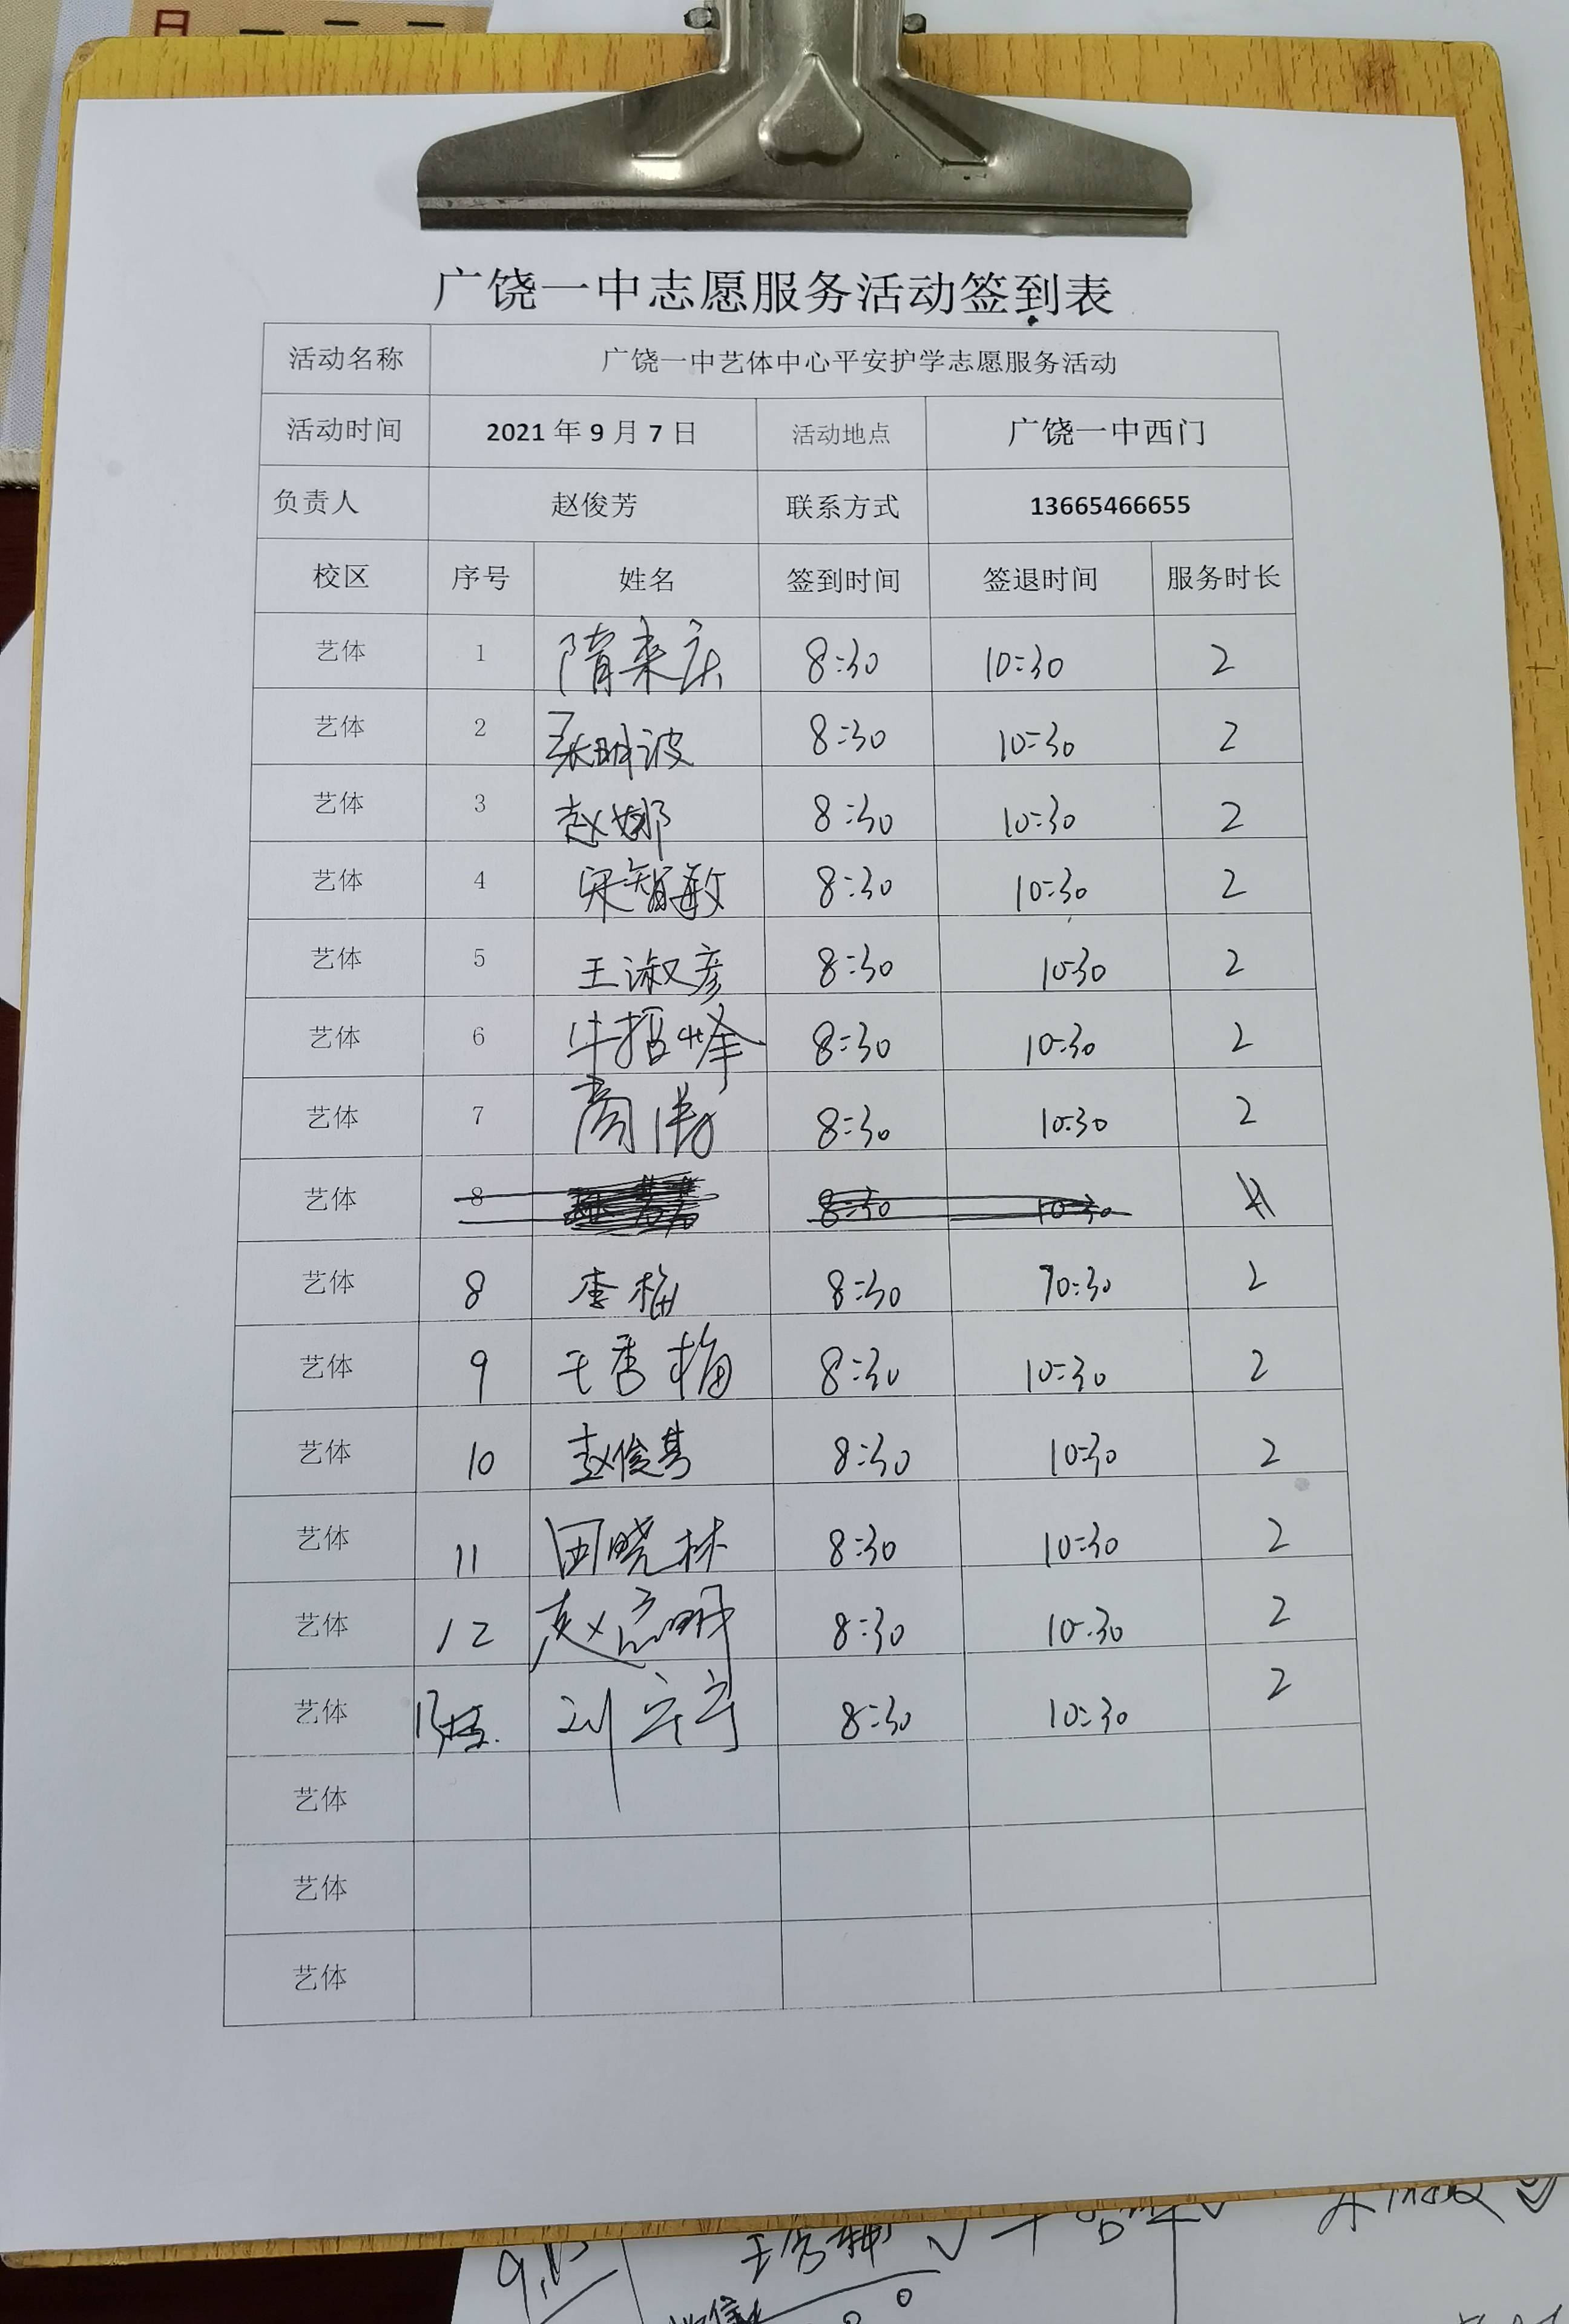 日 一 二 三
广饶一中志愿服务活动签到表
活动名称 广饶一中艺体中心平安护学志愿服务活动
活动时间 2021年9月7日 活动地点 广饶一中西门
负责人 赵俊芳 联系方式 13665466655
校区 序号 姓名 签到时间 签退时间 服务时长
艺体 1 隋来庆 8:30 10:30 2
艺体 2 张明波 8:30 10:30 2
艺体 3 赵娜 8:30 10:30 2
艺体 4 宋智敏 8:30 10:30 2
艺体 5 王淑彦 8:30 10:30 2
艺体 6 牛招峰 8:30 10:30 2
艺体 7 8:30 10:30 2
艺体 8 8:30 10:30
艺体 8 李梅 8:30 10:30 2
艺体 9 王秀梅 8:30 10:30 2
艺体 10 赵俊芳 8:30 10:30 2
艺体 11 田晓林 8:30 10:30 2
艺体 12 赵志明 8:30 10:30 2
艺体 13 刘宁宁 8:30 10:30 2
艺体
艺体
艺体
王秀梅